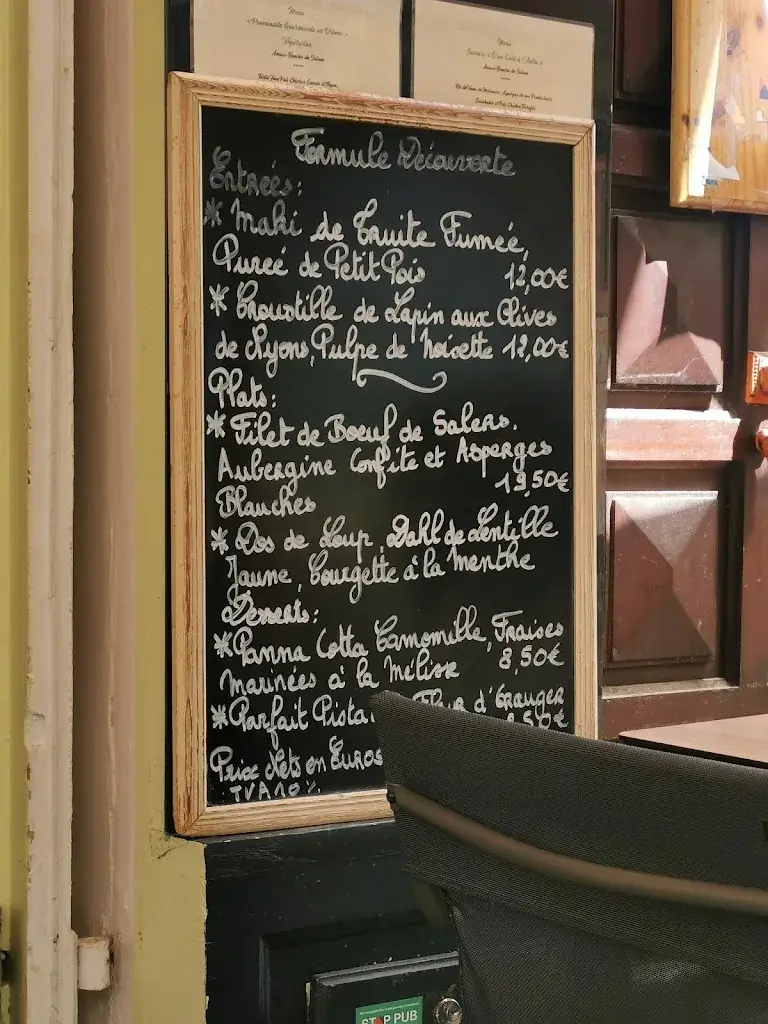 Menu
« Promenade Gourmande en Drôme »
Végétarien
Amuse-Bouche de Saison
Menu
Saveurs « D'un Goût à l'Autre »
Amuse-Bouche de Saison
Formule Découverte
Entrées:
* Maki de Truite Fumée,
Pureé de Petit Pois 12,00€
* Croustille de Lapin aux Olives
de Nyons, Pulpe de Noisette 12,00€
Plats:
* Filet de Boeuf de Salers.
Aubergine Confite et Asperges
19,50€
Blanches
* Dos de Loup, Dahl de Lentille
Jaune, Courgette à la Menthe
Desserts:
* Panna Cotta Camomille, Fraises
Marinées à la Mélisse 8,50€
* Parfait Pista Fleur d'Oranger
8,50€
Prix Nets en Euros
TVA 10%
STOP PUB